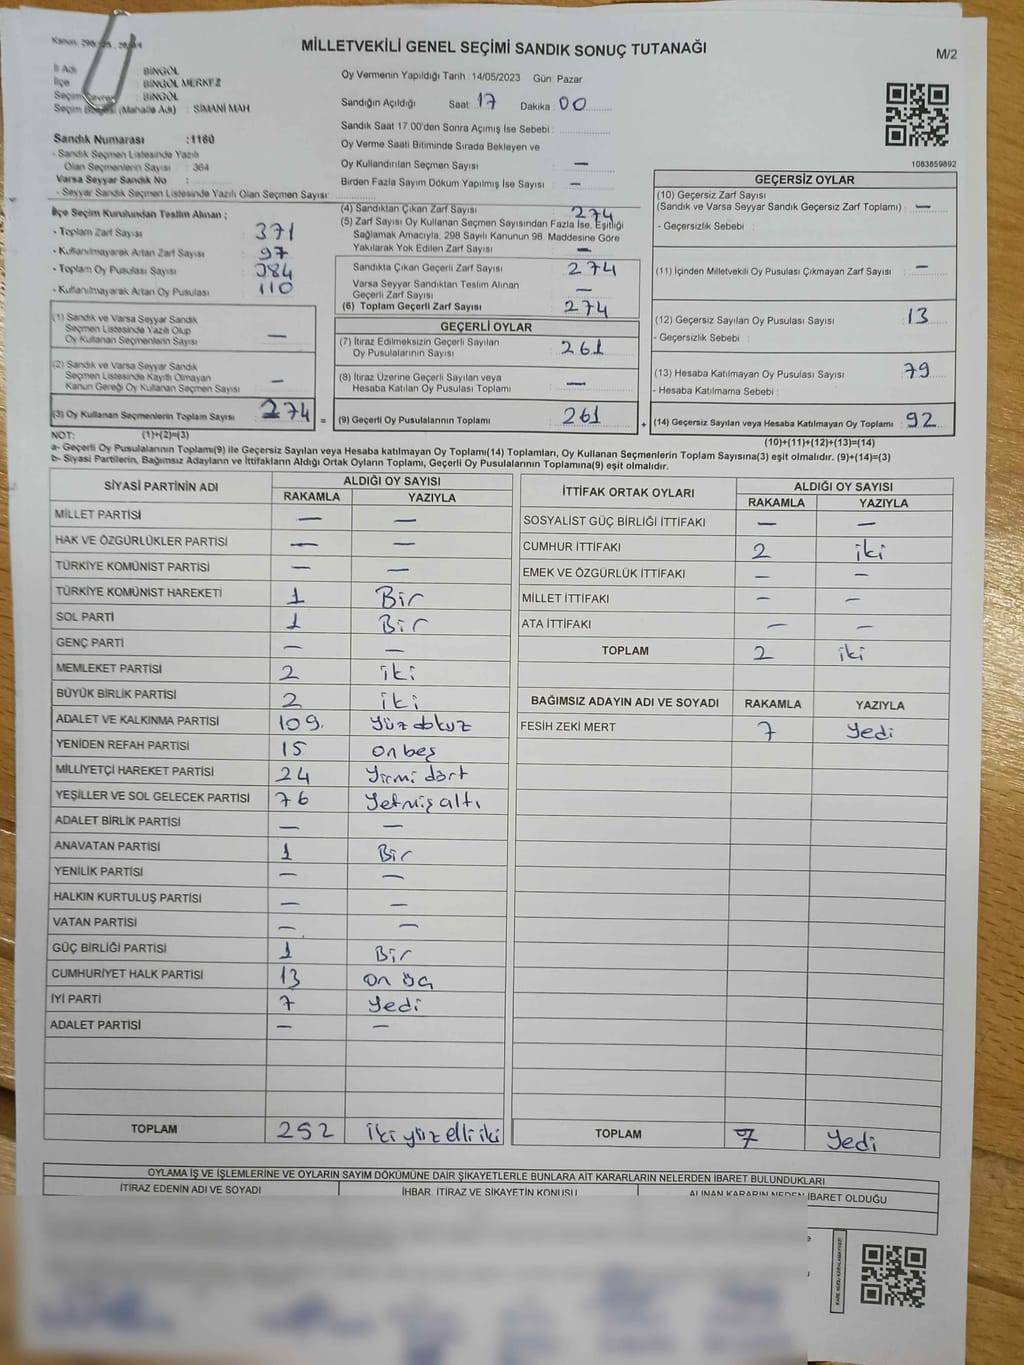 MİLLETVEKİLİ GENEL SEÇİMİ SANDIK SONUÇ TUTANAĞI
M/2
İl Adı : BİNGÖL
İlçe : BİNGÖL MERKEZ
Seçim Çevresi : BİNGÖL
Seçim Bölgesi (Mahalle Adı) : SİMANİ MAH
Sandık Numarası :1160
- Sandık Seçmen Listesinde Yazılı
Olan Seçmenlerin Sayısı : 364
Varsa Seyyar Sandık No :
- Seyyar Sandık Seçmen Listesinde Yazılı Olan Seçmen Sayısı :
Oy Vermenin Yapıldığı Tarih :14/05/2023 Gün: Pazar
Sandığın Açıldığı Saat: 17 Dakika: 00
Sandık Saat 17.00'den Sonra Açımış İse Sebebi :
Oy Verme Saati Bitiminde Sırada Bekleyen ve
Oy Kullandırılan Seçmen Sayısı : —
Birden Fazla Sayım Döküm Yapılmış İse Sayısı : —
1083859892
İlçe Seçim Kurulundan Teslim Alınan ;
- Toplam Zarf Sayısı : 371
- Kullanılmayarak Artan Zarf Sayısı : 97
- Toplam Oy Pusulası Sayısı : 384
- Kullanılmayarak Artan Oy Pusulası : 110
(1) Sandık ve Varsa Seyyar Sandık
Seçmen Listesinde Yazılı Olup
Oy Kullanan Seçmenlerin Sayısı : —
(2) Sandık ve Varsa Seyyar Sandık
Seçmen Listesinde Kayıtlı Olmayan
Kanun Gereği Oy Kullanan Seçmen Sayısı : —
(3) Oy Kullanan Seçmenlerin Toplam Sayısı : 274
(4) Sandıktan Çıkan Zarf Sayısı : 274
(5) Zarf Sayısı Oy Kullanan Seçmen Sayısından Fazla İse, Eşitliği
Sağlamak Amacıyla, 298 Sayılı Kanunun 98. Maddesine Göre
Yakılarak Yok Edilen Zarf Sayısı : —
Sandıkta Çıkan Geçerli Zarf Sayısı : 274
Varsa Seyyar Sandıktan Teslim Alınan
Geçerli Zarf Sayısı : —
(6) Toplam Geçerli Zarf Sayısı : 274
GEÇERLİ OYLAR
(7) İtiraz Edilmeksizin Geçerli Sayılan
Oy Pusulalarının Sayısı : 261
(8) İtiraz Üzerine Geçerli Sayılan veya
Hesaba Katılan Oy Pusulası Toplamı : —
= (9) Geçerli Oy Pusulalarının Toplamı : 261
GEÇERSİZ OYLAR
(10) Geçersiz Zarf Sayısı
(Sandık ve Varsa Seyyar Sandık Geçersiz Zarf Toplamı) : —
- Geçersizlik Sebebi :
(11) İçinden Milletvekili Oy Pusulası Çıkmayan Zarf Sayısı : —
(12) Geçersiz Sayılan Oy Pusulası Sayısı : 13
- Geçersizlik Sebebi :
(13) Hesaba Katılmayan Oy Pusulası Sayısı : 79
- Hesaba Katılmama Sebebi :
+ (14) Geçersiz Sayılan veya Hesaba Katılmayan Oy Toplamı : 92
NOT: (1)+(2)=(3)
(10)+(11)+(12)+(13)=(14)
a- Geçerli Oy Pusulalarının Toplamı(9) ile Geçersiz Sayılan veya Hesaba katılmayan Oy Toplamı(14) Toplamları, Oy Kullanan Seçmenlerin Toplam Sayısına(3) eşit olmalıdır. (9)+(14)=(3)
b- Siyasi Partilerin, Bağımsız Adayların ve İttifakların Aldığı Ortak Oyların Toplamı, Geçerli Oy Pusulalarının Toplamına(9) eşit olmalıdır.
SİYASİ PARTİNİN ADI ALDIĞI OY SAYISI
RAKAMLA YAZIYLA
MİLLET PARTİSİ — —
HAK VE ÖZGÜRLÜKLER PARTİSİ — —
TÜRKİYE KOMÜNİST PARTİSİ — —
TÜRKİYE KOMÜNİST HAREKETİ 1 Bir
SOL PARTİ 1 Bir
GENÇ PARTİ — —
MEMLEKET PARTİSİ 2 iki
BÜYÜK BİRLİK PARTİSİ 2 iki
ADALET VE KALKINMA PARTİSİ 109. yüz dokuz
YENİDEN REFAH PARTİSİ 15 on beş
MİLLİYETÇİ HAREKET PARTİSİ 24 Yirmi dört
YEŞİLLER VE SOL GELECEK PARTİSİ 76 Yetmiş altı
ADALET BİRLİK PARTİSİ — —
ANAVATAN PARTİSİ 1 Bir
YENİLİK PARTİSİ — —
HALKIN KURTULUŞ PARTİSİ — —
VATAN PARTİSİ — —
GÜÇ BİRLİĞİ PARTİSİ 1 Bir
CUMHURİYET HALK PARTİSİ 13 on üç
İYİ PARTİ 7 Yedi
ADALET PARTİSİ — —
TOPLAM 252 iki yüz elli iki
İTTİFAK ORTAK OYLARI ALDIĞI OY SAYISI
RAKAMLA YAZIYLA
SOSYALİST GÜÇ BİRLİĞİ İTTİFAKI — —
CUMHUR İTTİFAKI 2 iki
EMEK VE ÖZGÜRLÜK İTTİFAKI — —
MİLLET İTTİFAKI — —
ATA İTTİFAKI — —
TOPLAM 2 iki
BAĞIMSIZ ADAYIN ADI VE SOYADI RAKAMLA YAZIYLA
FESİH ZEKİ MERT 7 Yedi
TOPLAM 7 Yedi
OYLAMA İŞ VE İŞLEMLERİNE VE OYLARIN SAYIM DÖKÜMÜNE DAİR ŞİKAYETLERLE BUNLARA AİT KARARLARIN NELERDEN İBARET BULUNDUKLARI
İTİRAZ EDENİN ADI VE SOYADI İHBAR, İTİRAZ VE ŞİKAYETİN KONUSU ALINAN KARARIN NEDEN İBARET OLDUĞU